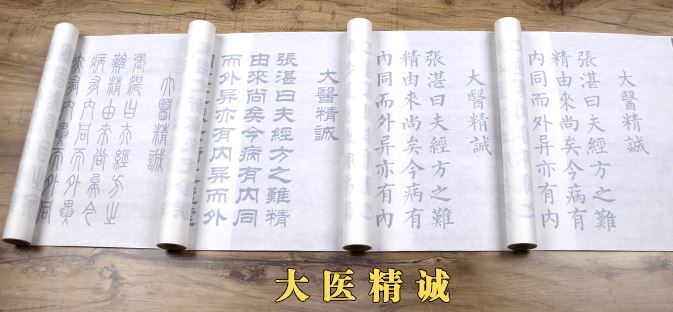 大醫精誠
張湛曰夫經方之難
精由來尚矣今病有
內同而外異亦有內
大醫精誠
張湛曰夫經方之難
精由來尚矣今病有
內同而外異亦有內
大醫精誠
張湛曰夫經方之難精
由來尚矣今病有內同
而外异亦有內异而外
大醫精誠
張湛曰夫經方之
難精由來尚矣今
病有內同而外異
大医精诚